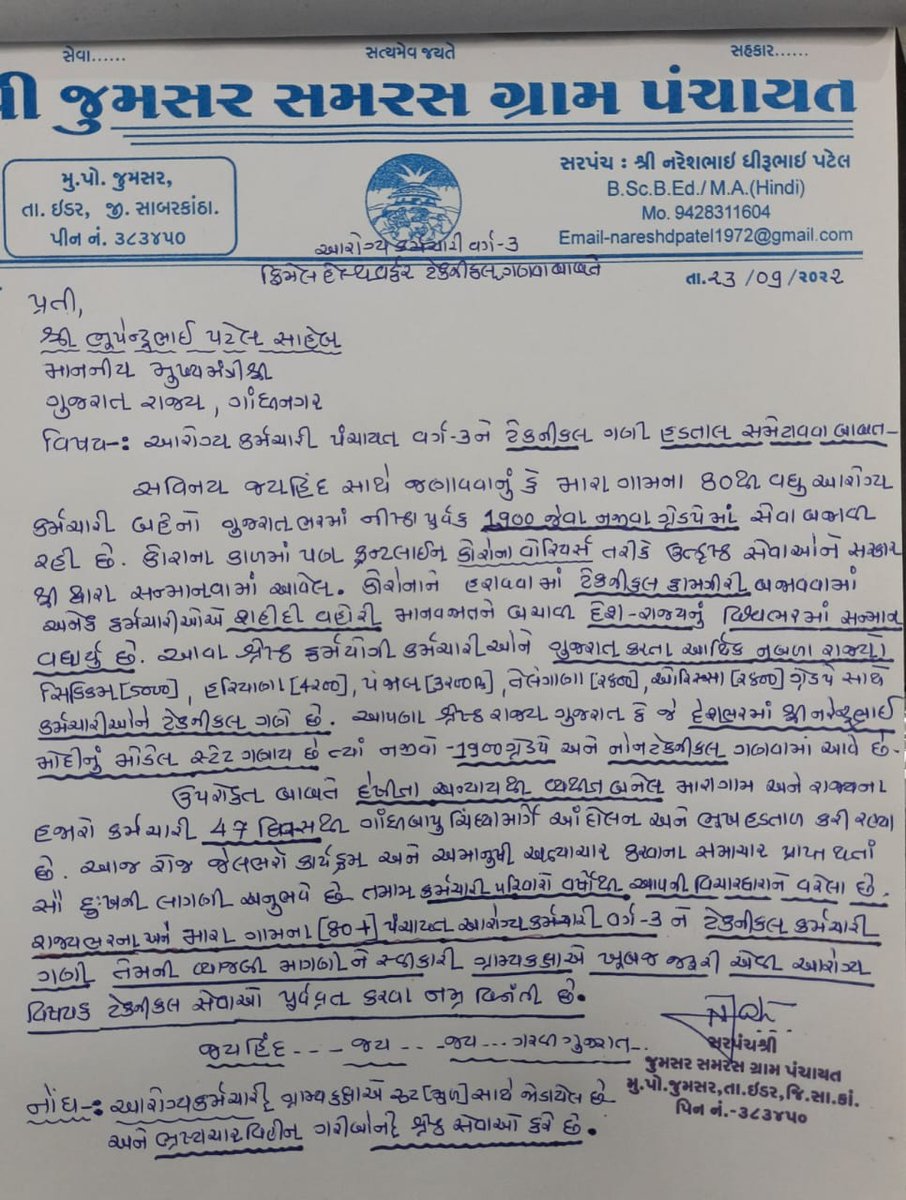 સેવા...... સત્યમેવ જયતે સહકાર......
શ્રી જુમસર સમરસ ગ્રામ પંચાયત
મુ.પો. જુમસર,
તા. ઇડર, જી. સાબરકાંઠા.
પીન નં. ૩૮૩૪૫૦
સરપંચ : શ્રી નરેશભાઇ ધીરૂભાઇ પટેલ
B.Sc.B.Ed./ M.A.(Hindi)
Mo. 9428311604
Email-nareshdpatel1972@gmail.com
આરોગ્ય કર્મચારી વર્ગ-૩
ફિમેલ હેલ્થ વર્કર ટેકનીકલ ગણવા બાબતે
તા.૨૩ /૦૯ /૨૦૨૨
પ્રતી,
શ્રી ભૂપેન્દ્રભાઈ પટેલ સાહેબ
માનનીય મુખ્યમંત્રીશ્રી
ગુજરાત રાજ્ય , ગાંધીનગર
વિષય-: આરોગ્ય કર્મચારી પંચાયત વર્ગ-૩ને ટેકનીકલ ગણી હડતાલ સમેટાવવા બાબત-
સવિનય જયહિંદ સાથે જણાવવાનું કે મારા ગામના ૪૦થી વધુ આરોગ્ય
કર્મચારી બહેનો ગુજરાતભરમાં નીષ્ઠા પુર્વક 1900 જેવા નજીવા ગ્રેડપેમાં સેવા બજાવી
રહી છે. કોરોના કાળમાં પણ ફ્રન્ટલાઈન કોરોના વોરિયર્સ તરીકે ઉત્કૃષ્ઠ સેવાઓને સરકાર
શ્રી દ્વારા સન્માનવામાં આવેલ. કોરોનાને હરાવવામાં ટેકનીકલ કામગીરી બજાવવામાં
અનેક કર્મચારીઓએ શહીદી વહોરી માનવજાતને બચાવી દેશ-રાજ્યનું વિશ્વભરમાં સન્માન
વધાર્યુ છે. આવા શ્રેષ્ઠ કર્મયોગી કર્મચારીઓને ગુજરાત કરતા આર્થિક નબળા રાજ્યો
સિક્કિમ [5000] , હરિયાણા [4200] , પંજાબ [3200] , તેલંગાણા [2400] , ઓરિસ્સા [2400] ગ્રેડપે સાથે
કર્મચારીઓને ટેકનીકલ ગણે છે. આપણા શ્રેષ્ઠ રાજ્ય ગુજરાત કે જે દેશભરમાં શ્રી નરેન્દ્રભાઈ
મોદીનું મોડેલ સ્ટેટ ગણાય છે ત્યાં નજીવો -1900 ગ્રેડપે અને નોનટેકનીકલ ગણવામાં આવે છે.
ઉપરોક્ત બાબતે દેખીતા અન્યાયથી વ્યથીત બનેલ મારાગામ અને રાજ્યના
હજારો કર્મચારી 47 દિવસથી ગાંધીબાપુ ચિંધ્યામાર્ગે આંદોલન અને ભુખ હડતાળ કરી રહ્યા
છે. આજ રોજ જેલભરો કાર્યક્રમ અને અમાનુષી અત્યાચાર કરવાના સમાચાર પ્રાપ્ત થતાં
સૌ દુઃખની લાગણી અનુભવે છે તમામ કર્મચારી પરિવારો વર્ષોથી આપની વિચારધારાને વરેલા છે.
રાજ્યભરના અને મારા ગામના [૪૦+] પંચાયત આરોગ્ય કર્મચારી વર્ગ-૩ ને ટેકનીકલ કર્મચારી
ગણી તેમની વ્યાજબી માગણીને સ્વીકારી ગ્રામ્યકક્ષાએ ખૂબજ જરૂરી એવી આરોગ્ય
વિષયક ટેકનીકલ સેવાઓ પુર્વવ્રત કરવા નમ્ર વિનંતી છે.
જયહિંદ --- જય --- જય --- ગરવી ગુજરાત--
સરપંચશ્રી
જુમસર સમરસ ગ્રામ પંચાયત
મુ.પો.જુમસર,તા.ઇડર,જિ.સા.કાં.
પિન નં.-૩૮૩૪૫૦
નોંધ-: આરોગ્યકર્મચારી ગ્રામ્ય કક્ષાએ રૂટ [મુળ] સાથે જોડાયેલ છે
અને ભ્રષ્ટાચાર વિહીન ગરીબોની શ્રેષ્ઠ સેવાઓ કરે છે.